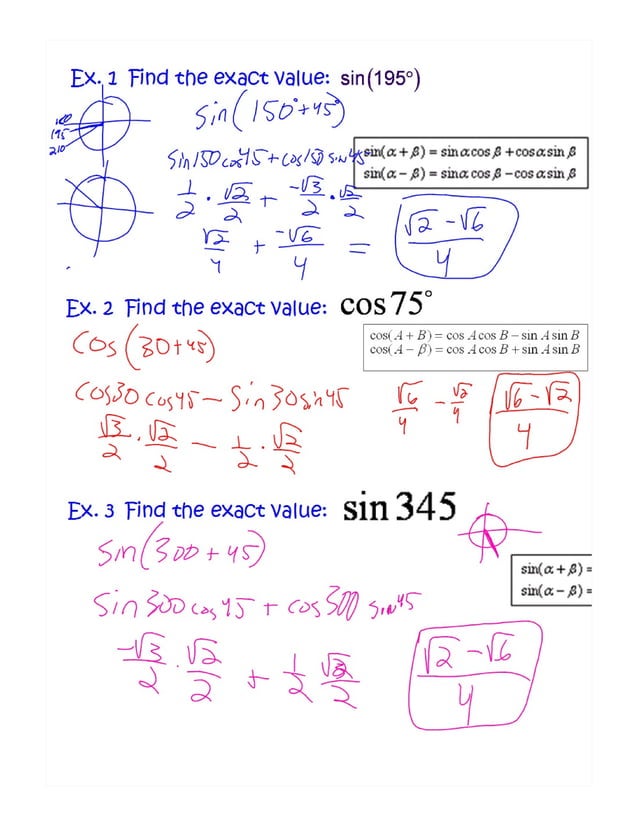 Ex. 1 Find the exact value: sin(195°)
sin(150°+45°)
180
195
210
sin150cos45+cos150 sin45
sin(α + β) = sin α cos β + cos α sin β
sin(α − β) = sin α cos β − cos α sin β
1/2 · √2/2 + -√3/2 · √2/2
√2/4 + -√6/4 = √2 -√6/4
Ex. 2 Find the exact value: cos75°
cos(30+45)
cos( A + B ) = cos A cos B − sin A sin B
cos( A − β ) = cos A cos B + sin A sin B
cos30 cos45 − sin30sin45
√6/4 − √2/4 √6-√2/4
√3/2 · √2/2 − 1/2 · √2/2
Ex. 3 Find the exact value: sin 345
sin(300 + 45)
sin(α + β) =
sin(α − β) =
sin300cos45 + cos300 sin45
-√3/2 · √2/2 + 1/2 √2/2
√2 -√6/4